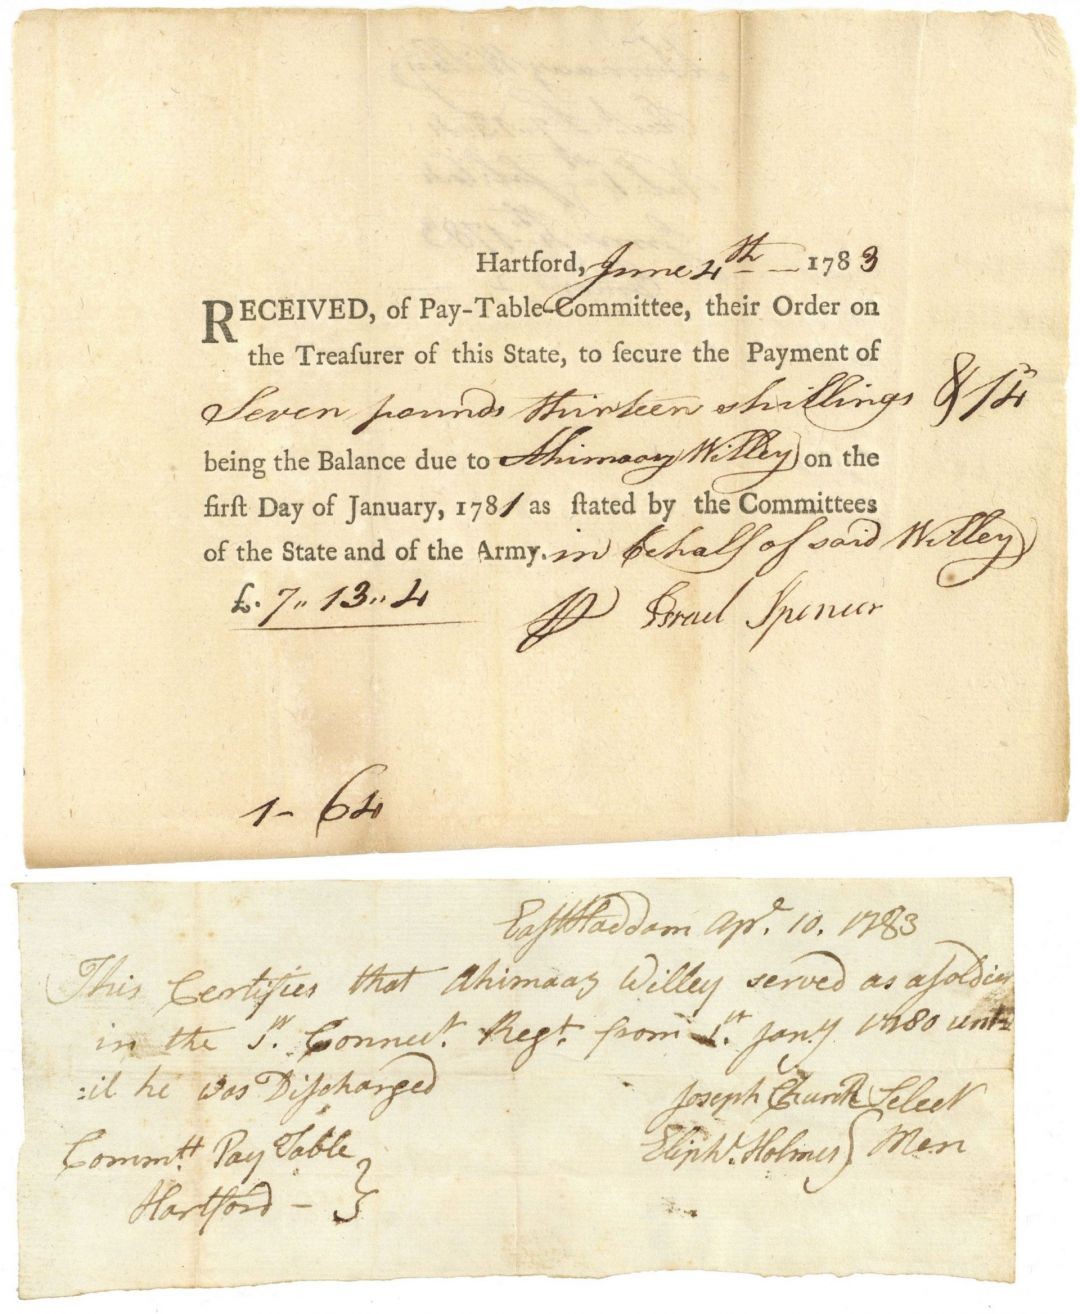 Hartford, June 4th — 1783
RECEIVED, of Pay-Table-Committee, their Order on
the Treaſurer of this State, to ſecure the Payment of
Seven pounds thirteen shillings &
being the Balance due to Ahimaaz Willey on the
firſt Day of January, 1781 as ſtated by the Committees
of the State and of the Army. in behalf of said Willey
£. 7,, 13,, 4
Israel Spencer
1 - 64
East Haddam Apr. 10. 1783
This Certifies that Ahimaaz Willey served as a soldier
in the Connect. Regt. from 1st Jany 1780 unt
:il he was Diſcharged
Joseph Church } Select
Eliph. Holmes } Men
Commtt Pay Table
Hartford — }